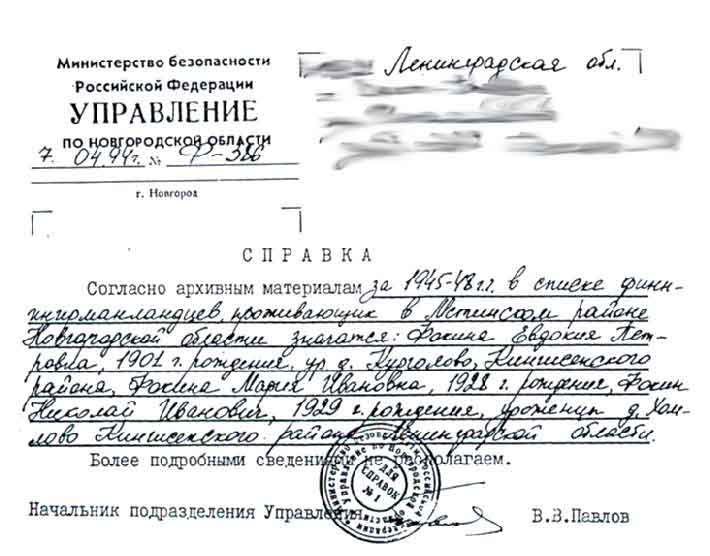 Министерство безопасности
Российской Федерации
УПРАВЛЕНИЕ
ПО НОВГОРОДСКОЙ ОБЛАСТИ
7. 04.94г. № Ф-326
г. Новгород
Ленинградская обл.
СПРАВКА
Согласно архивным материалам за 1945-48 г.г. в списке финн-
ингирманландцев, проживающих в Мстинском районе
Новгородской области значатся: Фокина Евдокия Пет-
ровна, 1901 г. рождения, ур. д. Курголово, Кингисепского
района, Фокина Мария Ивановна, 1928 г. рождения, Фокин
Николай Иванович, 1929 г. рождения, уроженцы д. Хам-
лово Кингисепского района Ленинградской области.
Более подробными сведениями не располагаем.
ДЛЯ
СПРАВОК
№ 1
Начальник подразделения Управления В.В.Павлов